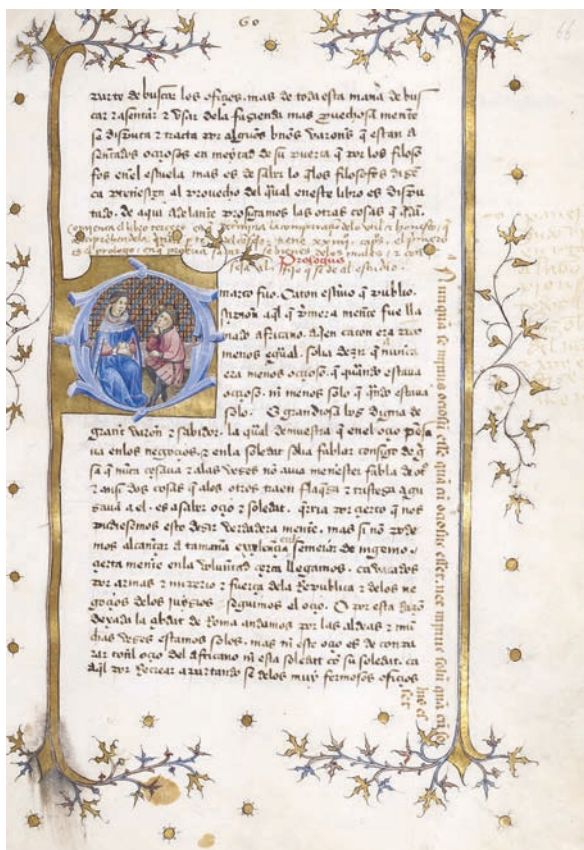 60
66
parte de buscar los ofiçios. mas de toda esta manera de bus
car z asentar z vsar dela fazienda mas prouechosa mente
se disputa z tracta por algunos bnos varones q estan a
sentados oçiosos en meytad de su puerta q por los filoso
fos en el escuela. mas es de saber lo q los filosofos
al prouecho del qual en este libro es dispu
tado. de aqui adelante prosigamos las otras cosas q
Comiença el libro terçero
Prologus
es el prologo
fijo q se de al estudio.
marco fijo. Caton escriuo q publio
çipion aql q primera mente fue lla
mado africano. aqen caton era poco
menos egual. solia dezir q nunca
era menos oçioso. q quando estaua
oçioso. ni menos solo q qndo estaua
solo. O grandiosa bos digna de
grant varon z sabidor. la qual demuestra q en el oçio pensa
ua enlos negoçios. z enla soledat solia fablar consigo de
sa q nunca cesaua z alas vezes no auia menester fabla de ot
z ansi dos cosas q alos otros traen flaqza z tristeza agu
zauan a el. es a saber oçio z soledat. qrria por çierto q nos
pudiesemos esto dezir verdadera mente. mas si no pode
mos alcançar a tamaña exçelençia semejar de ingenio.
çierta mente enla voluntad çerca llegamos. ca
por armas z inperio z fuerça dela Republica z delos ne
goçios delos juyzios seguimos el oçio. O por esta razon
dexada la çibdat de Roma andamos por las aldeas z mu
chas vezes estamos solos. mas ni este oçio es de conpa
rar con el oçio del africano ni esta soledat con su soledat. ca
aql por Recrear apartando se delos muy fermosos ofiçios
Nunqua se minus otiosum esse qua cu otiosus esset. nec minus solu qua cu so
lus es
set